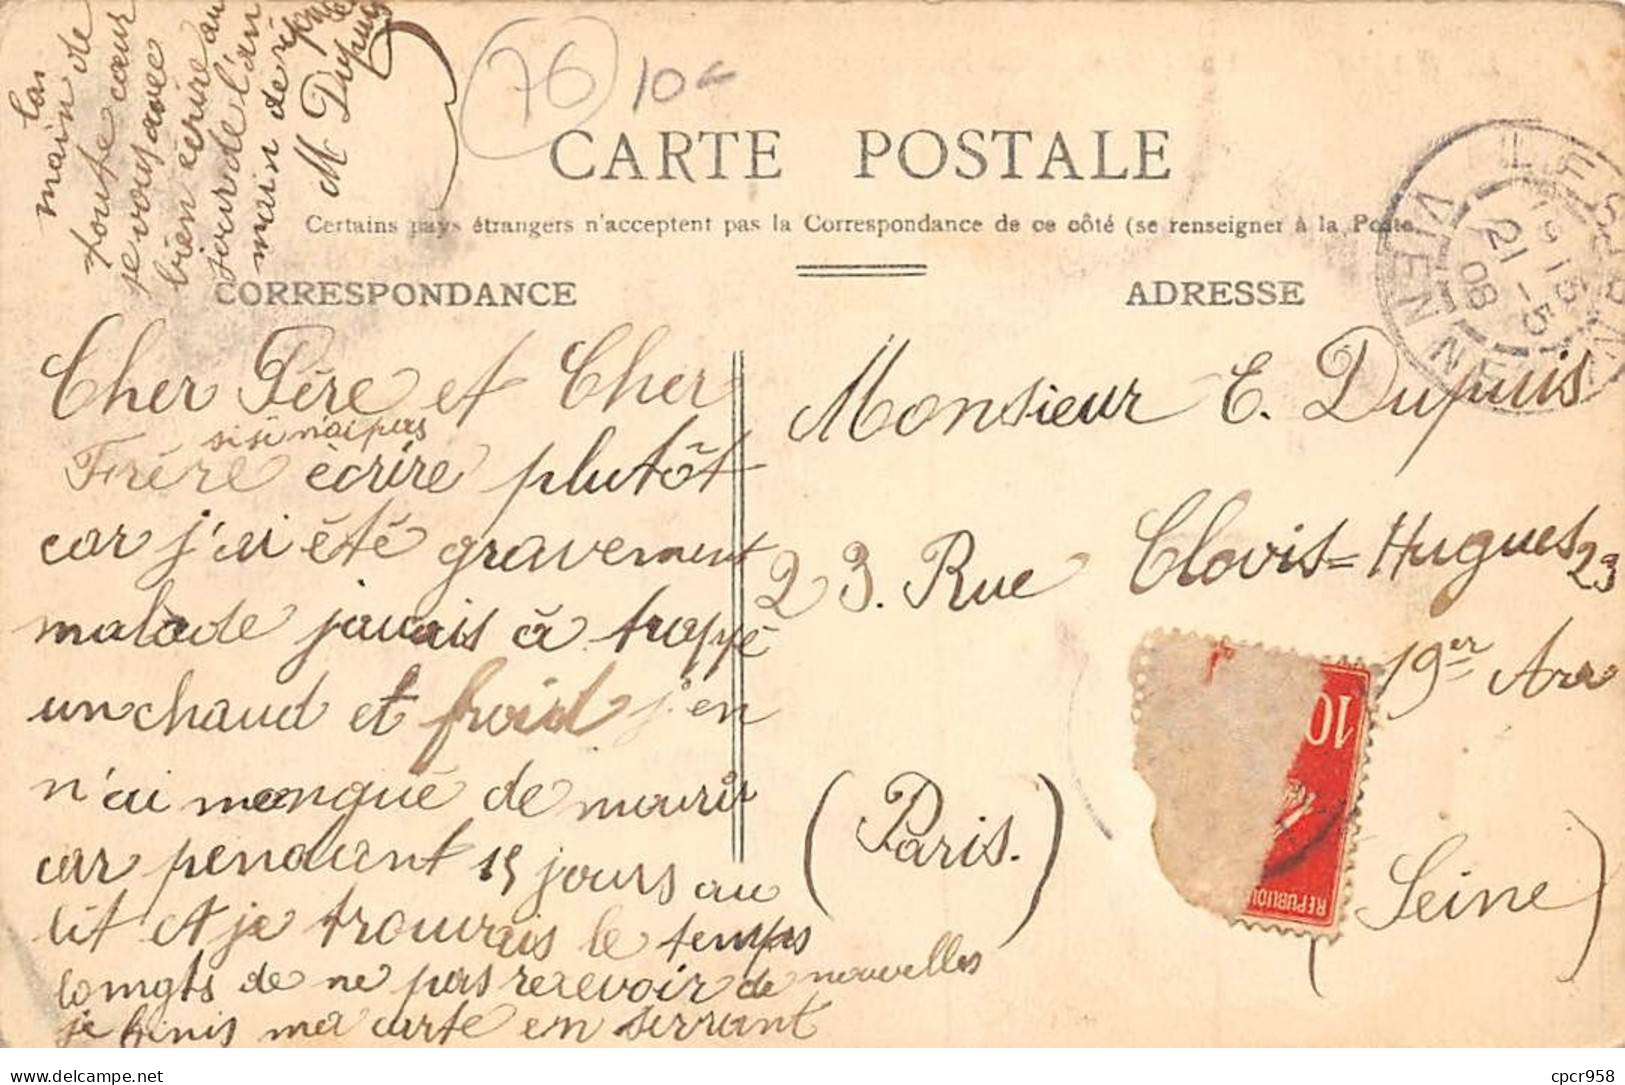 76 10
CARTE POSTALE
Certains pays étrangers n'acceptent pas la Correspondance de ce côté (se renseigner à la Poste
CORRESPONDANCE
Cher Père et Cher
si je n'ai pas
Frère écrire plutôt
car j'ai été gravement
malade javais à trappé
un chaud et froid j'en
n'ai mangué de mourir
car pendant 15 jours au
lit et je trouvais le temps
lomgts de ne pas recevoir de nouvelles
je finis ma carte en serrant
la
main de
toute cœur
je vous avee
bien écrire au
jour de l'an
main de
M Dupuis
ADRESSE
Monsieur E. Dupuis
23. Rue Clovis=Hugues 23
19er Arr
(Paris.)
(Seine)
VIENNE
21 -5
08
10
REPUBLIQU
cpcr958
Delcampe.net